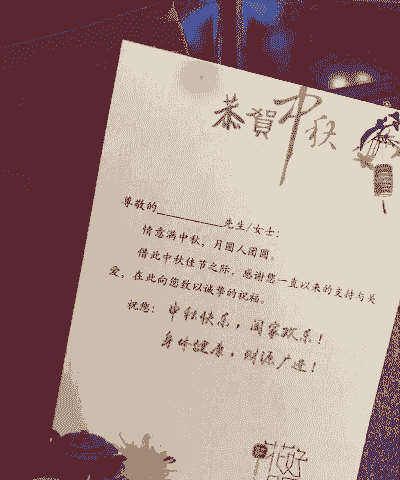 恭賀中秋
尊敬的________先生/女士:
情意满中秋，月圆人团圆。
借此中秋佳节之际，感谢您一直以来的支持与关
爱，在此向您致以诚挚的祝福。
祝您：中秋快乐，阖家欢乐！
身体健康，财源广进！
花好